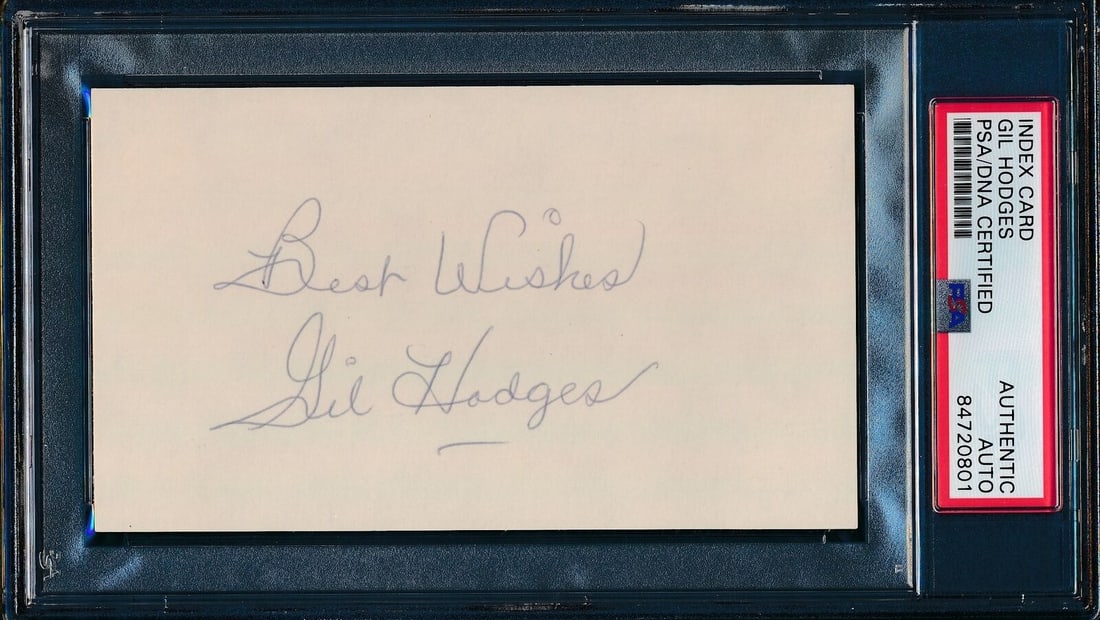 Best Wishes
Gil Hodges
INDEX CARD
GIL HODGES
PSA/DNA CERTIFIED
PSA
AUTHENTIC
AUTO
84720801